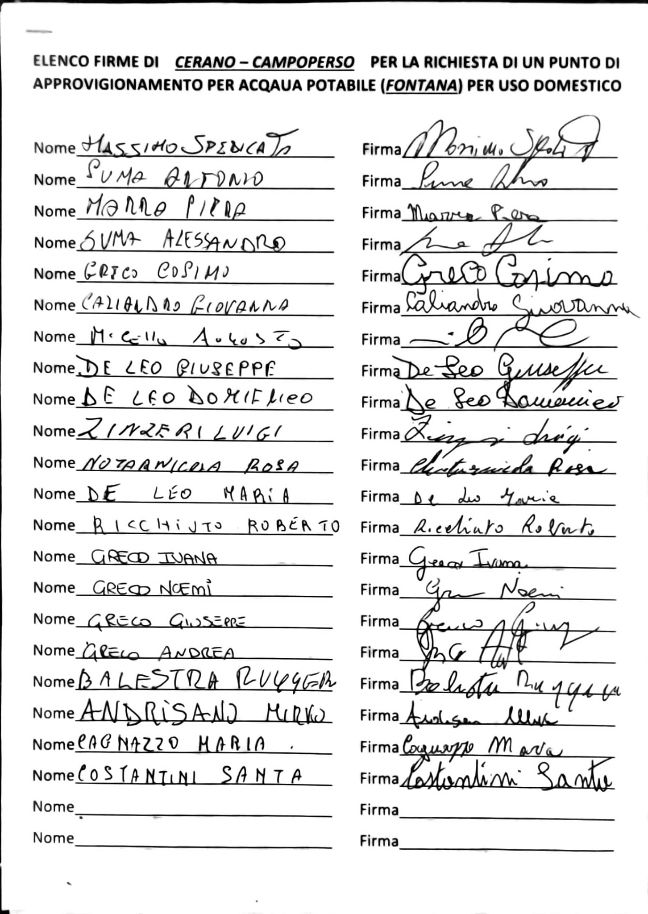 ELENCO FIRME DI CERANO – CAMPOPERSO PER LA RICHIESTA DI UN PUNTO DI
APPROVIGIONAMENTO PER ACQAUA POTABILE (FONTANA) PER USO DOMESTICO
Nome MASSIMO SPEDICATO Firma Massimo
Nome SUMA ANTONIO Firma
Nome MARRA PIERA Firma Marra Piera
Nome SUMA ALESSANDRO Firma
Nome GRECO COSIMO Firma Greco Cosimo
Nome CALIANDRO GIOVANNA Firma Caliandro Giovanna
Nome Firma
Nome DE LEO GIUSEPPE Firma De Leo Giuseppe
Nome DE LEO DOMENICO Firma De Leo Domenico
Nome ZINZERI LUIGI Firma Luigi
Nome NOTARNICOLA ROSA Firma Rosa
Nome DE LEO MARIA Firma De Leo Maria
Nome RICCHIUTO ROBERTO Firma Ricchiuto Roberto
Nome GRECO IVANA Firma Greco Ivana
Nome GRECO NOEMI Firma Noemi
Nome GRECO GIUSEPPE Firma Greco
Nome GRECO ANDREA Firma
Nome BALESTRA RUGGERO Firma Balestra
Nome ANDRISANO MIRKO Firma
Nome CAGNAZZO MARIA Firma Cagnazzo Maria
Nome COSTANTINI SANTA Firma Costantini Santa
Nome Firma
Nome Firma